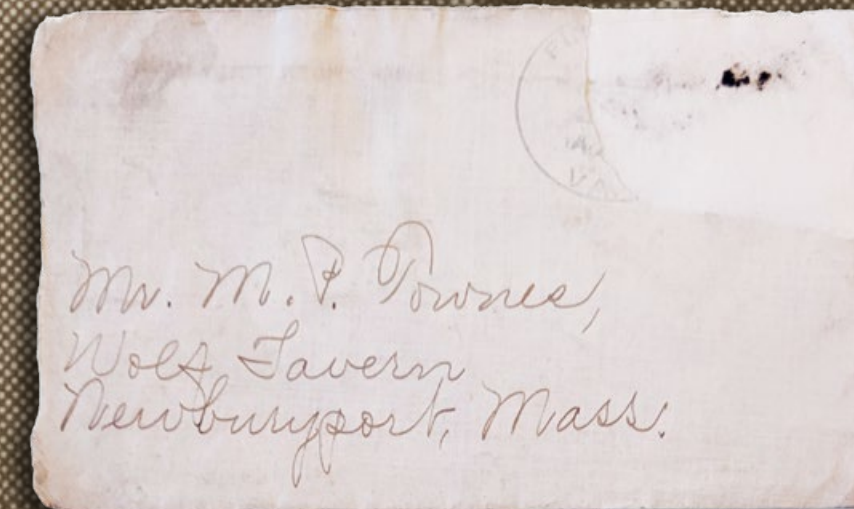 VA
Mr. M. P. Townes,
Wolf Tavern
Newburyport, Mass.